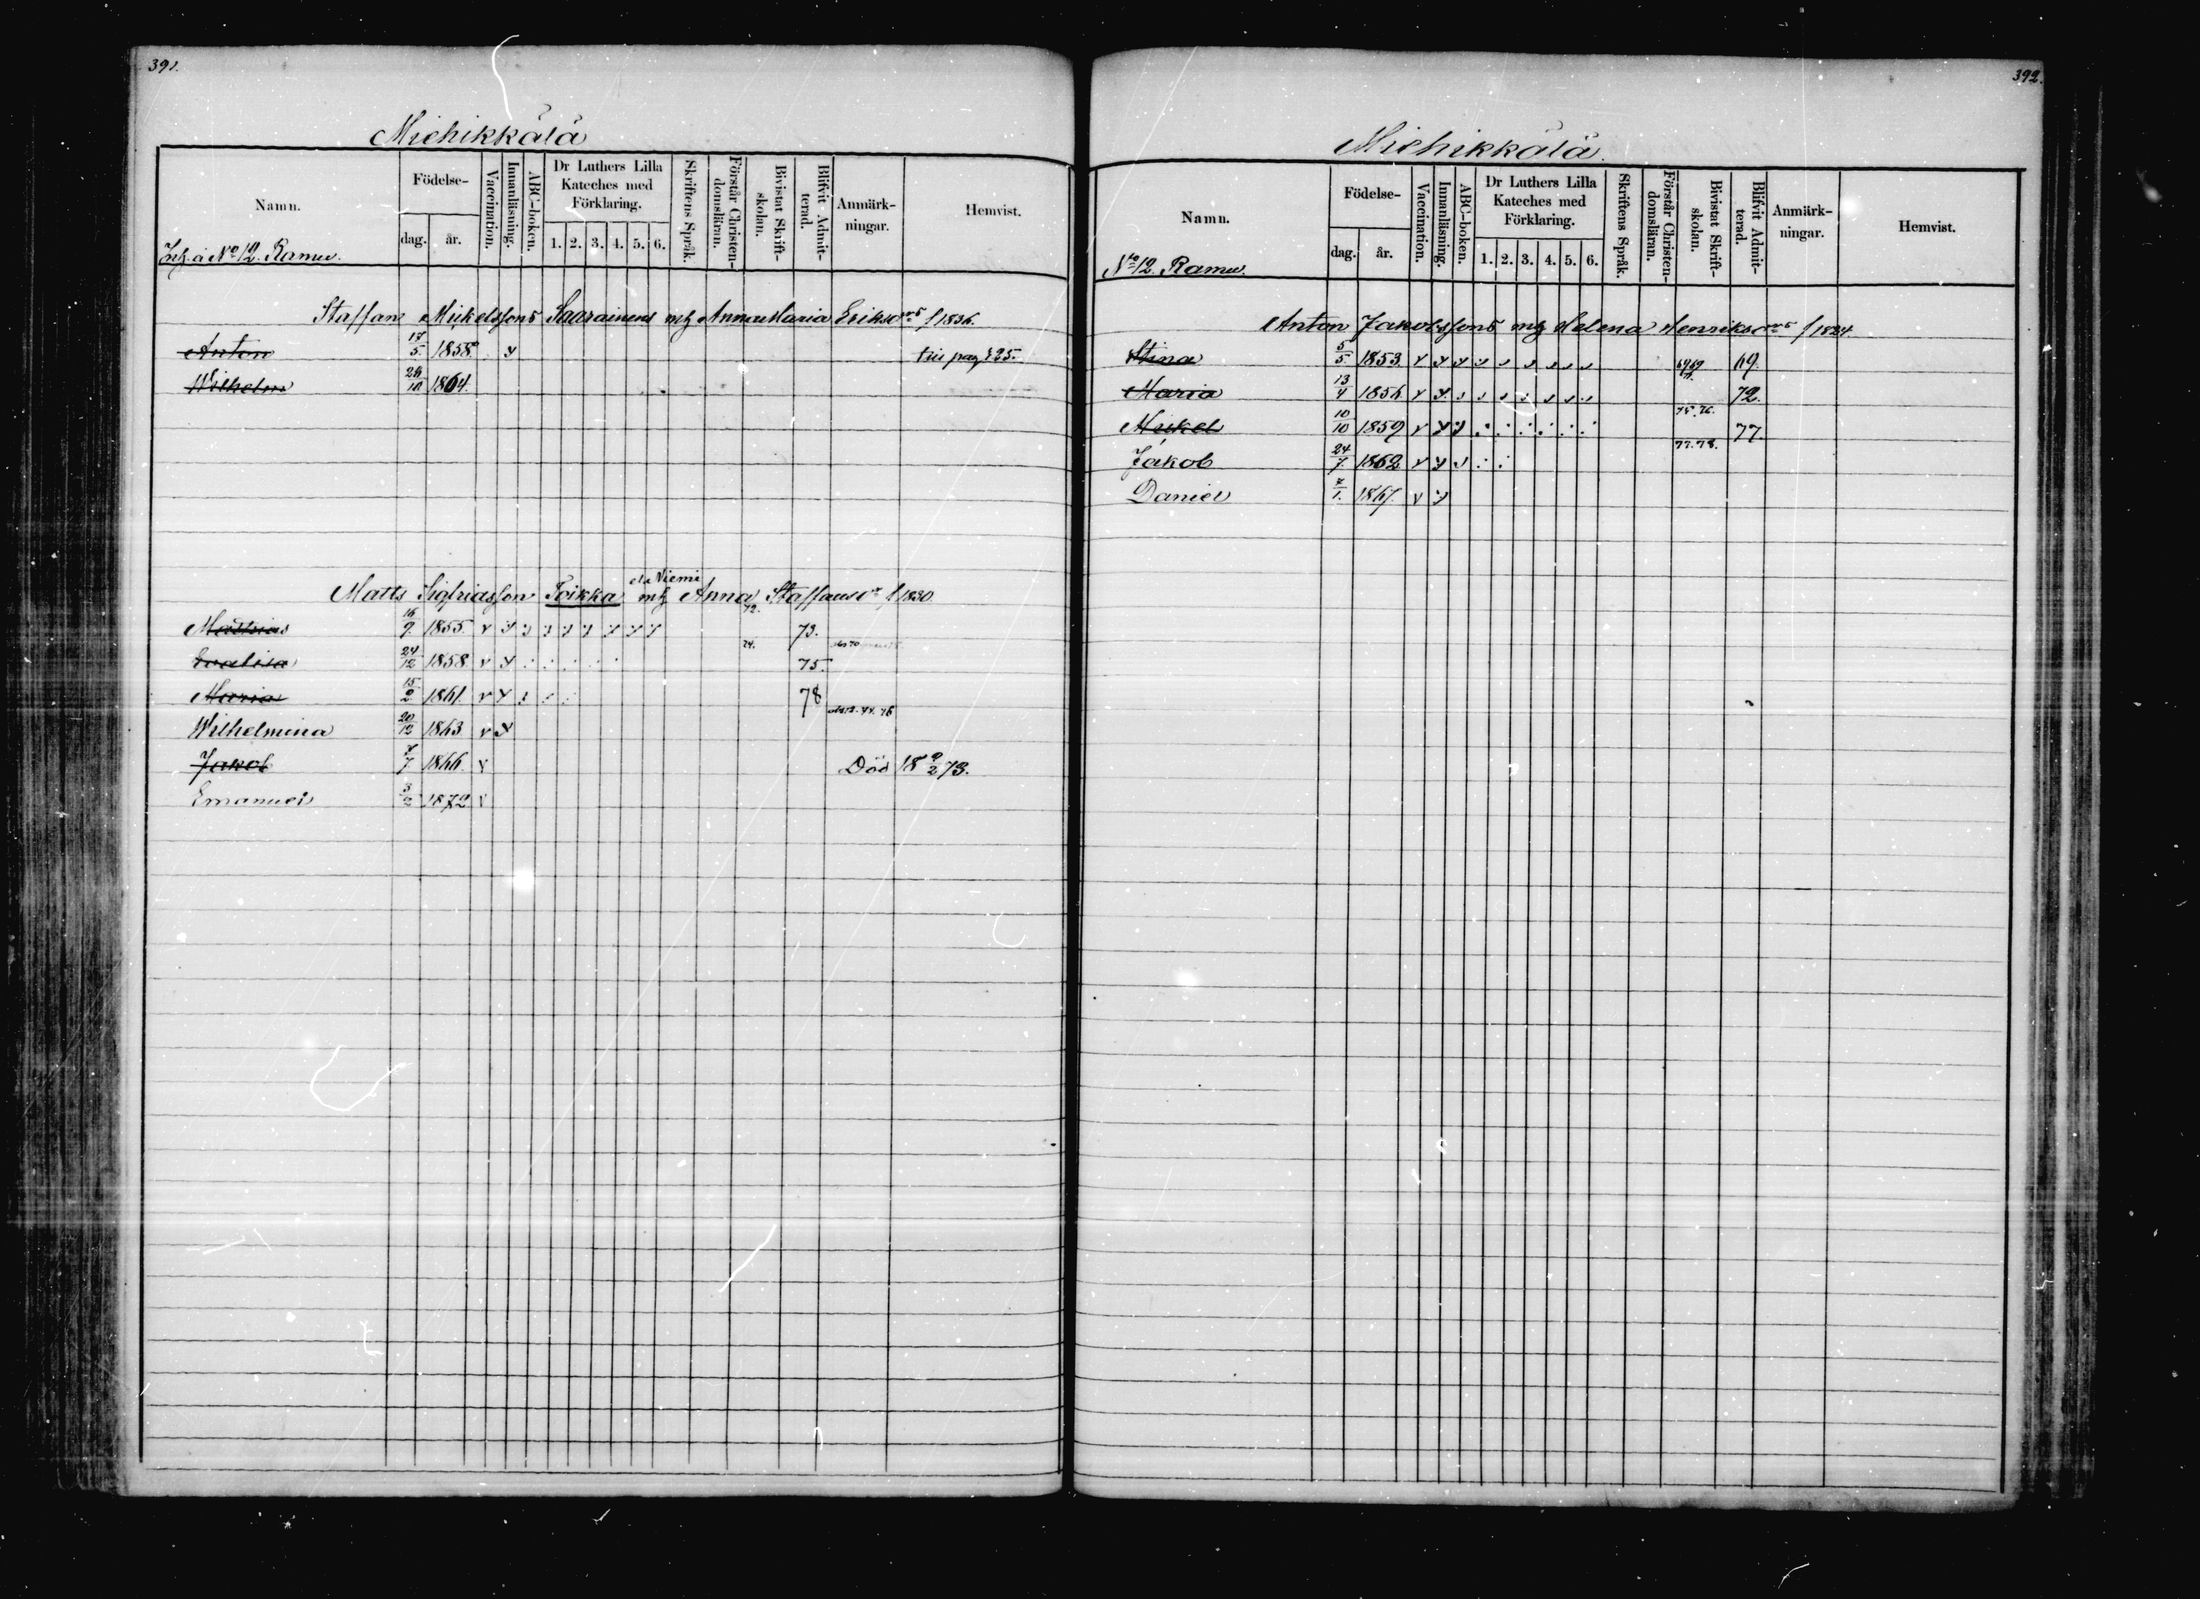 391.
Michikkälä
Namn.
Födelse-
dag. år.
Vaccination.
Innanläsning.
ABC-boken.
Dr Luthers Lilla
Kateches med
Förklaring.
1. 2. 3. 4. 5. 6.
Skriftens Språk.
Förstår Christen-
domsläran.
Bivistat Skrift-
skolan.
Blifvit Admit-
terad.
Anmärk-
ningar.
Hemvist.
Inh. å No 12. Ramu.
Staffan Mickelssons Saarainens m hu Anna Maria Eriksdrs f 1836.
Anton 17/5. 1858. till pag 425.
Wilhelm 26/10 1864.
Matts Sigfridsson Toikka el. Niemi m hu Anna Staffansdr f 1830.
Mathias 16/9. 1855. 72. 73.
Evalisa 24/12 1858. 74. 75.
Maria 15/2 1861. 78
Wilhelmina 20/12 1863
Jakob 7/7 1866. Död 18 9/2 73.
Emanuel 3/2 1872
392.
Michikkälä.
Namn.
Födelse-
dag. år.
Vaccination.
Innanläsning.
ABC-boken.
Dr Luthers Lilla
Kateches med
Förklaring.
1. 2. 3. 4. 5. 6.
Skriftens Språk.
Förstår Christen-
domsläran.
Bivistat Skrift-
skolan.
Blifvit Admit-
terad.
Anmärk-
ningar.
Hemvist.
No 12. Ramu.
Anton Jakobssons m hu Helena Henriksdrs f 1824.
Stina 5/5 1853. 69.
Maria 13/4 1856. 72.
Mickel 10/10 1859 75. 76. 77.
Jakob 24/7. 1862 77. 78.
Daniel 7/1. 1867.